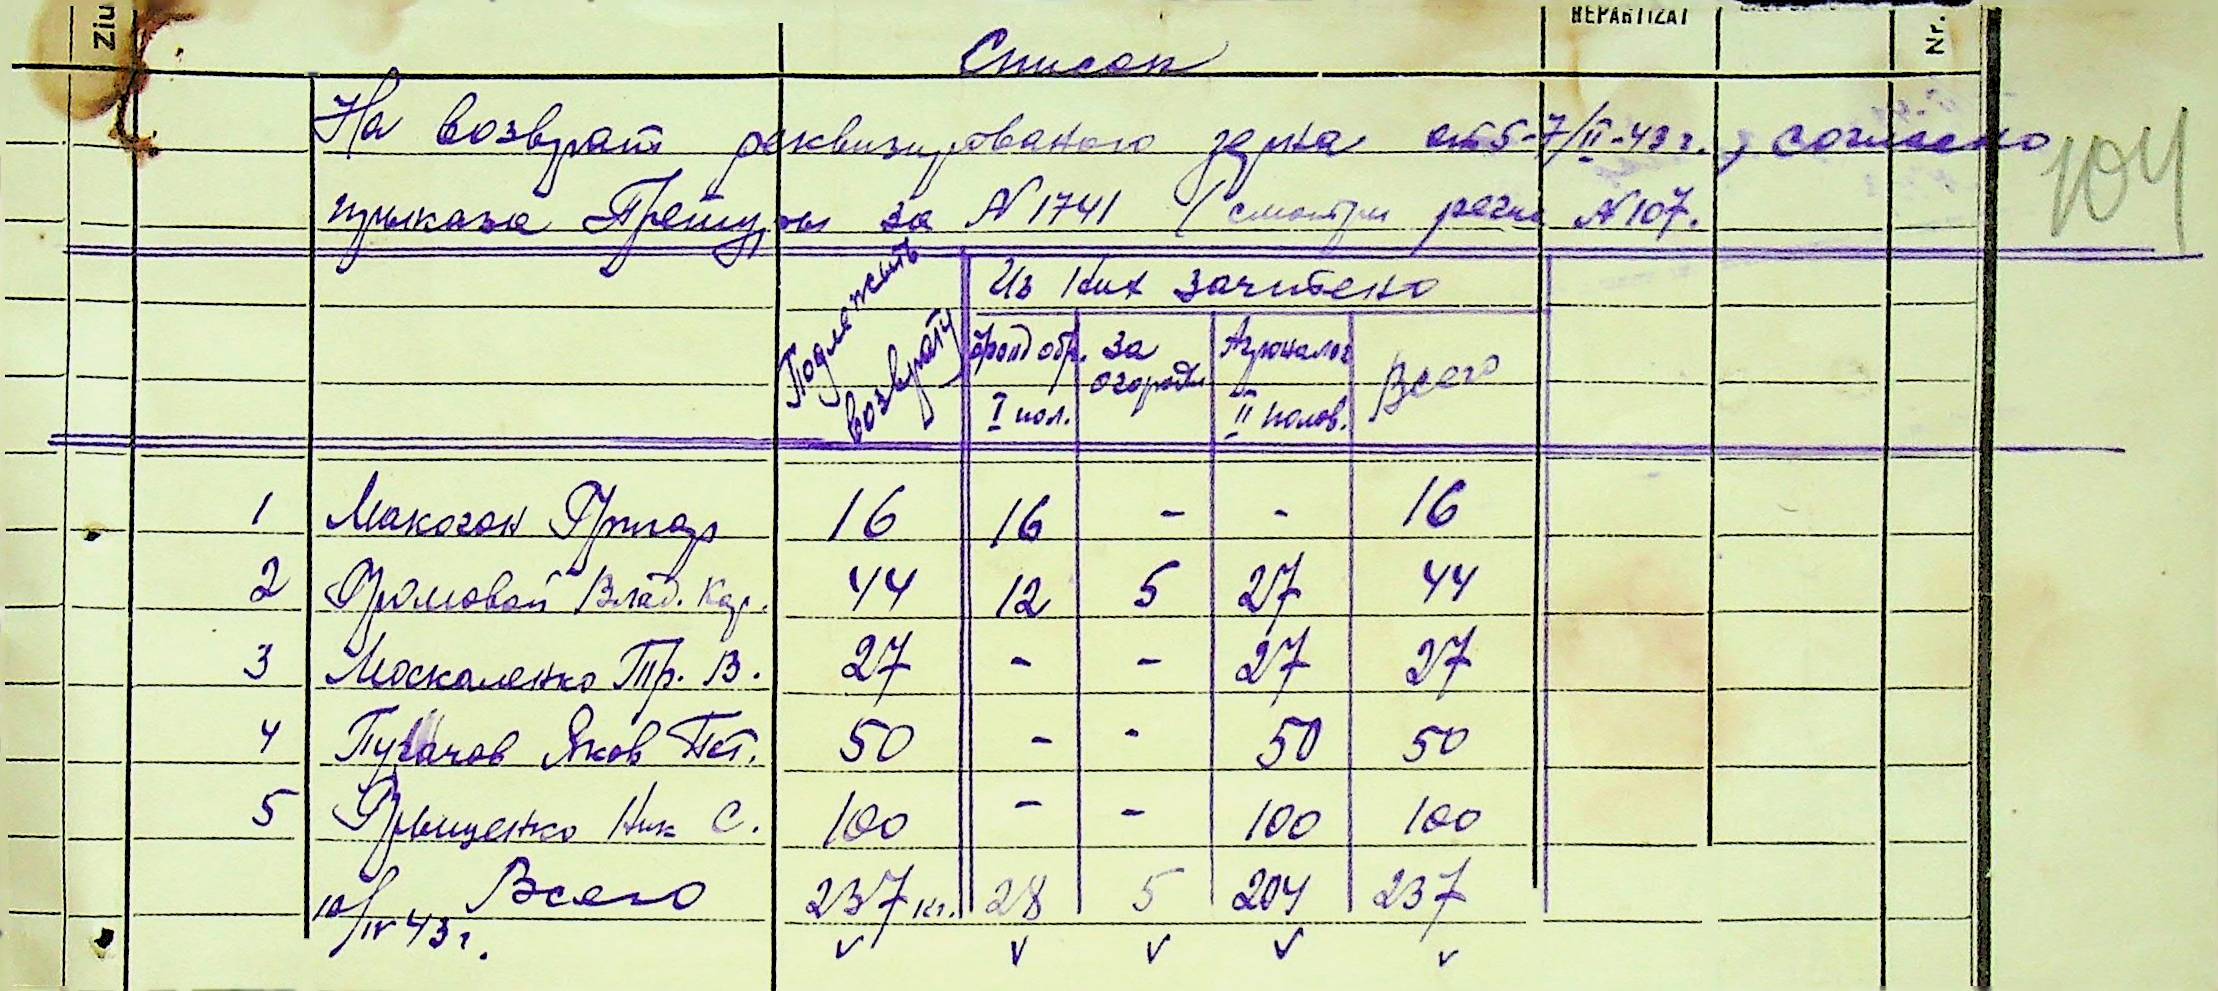 Ziu
REPARTIZAT
Nr.
Список
На возврат реквизированого зерна от 5-7/II-43 г., согласно
приказа Претуры за № 1741 (смотри регл № 107.
104
Подлежит возврату
Из них зачитено
фонд обр. I пол.
за огороды
Агроналог II полов.
Всего
1 Макогон Григор 16 16 - - 16
2 Громовой Влад. Кар. 44 12 5 27 44
3 Москаленко Тр. В. 27 - - 27 27
4 Пугачов Яков Пет. 50 - - 50 50
5 Грищенко Ник С. 100 - - 100 100
Всего 237 кг. 28 5 204 237
10/IV 43 г.